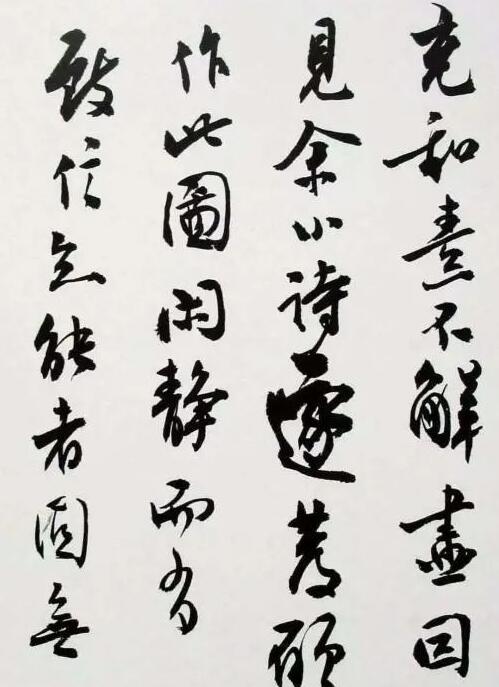 充和素不解畫因
見余小詩遂發願
作此圖閑靜而有
致信知能者固無